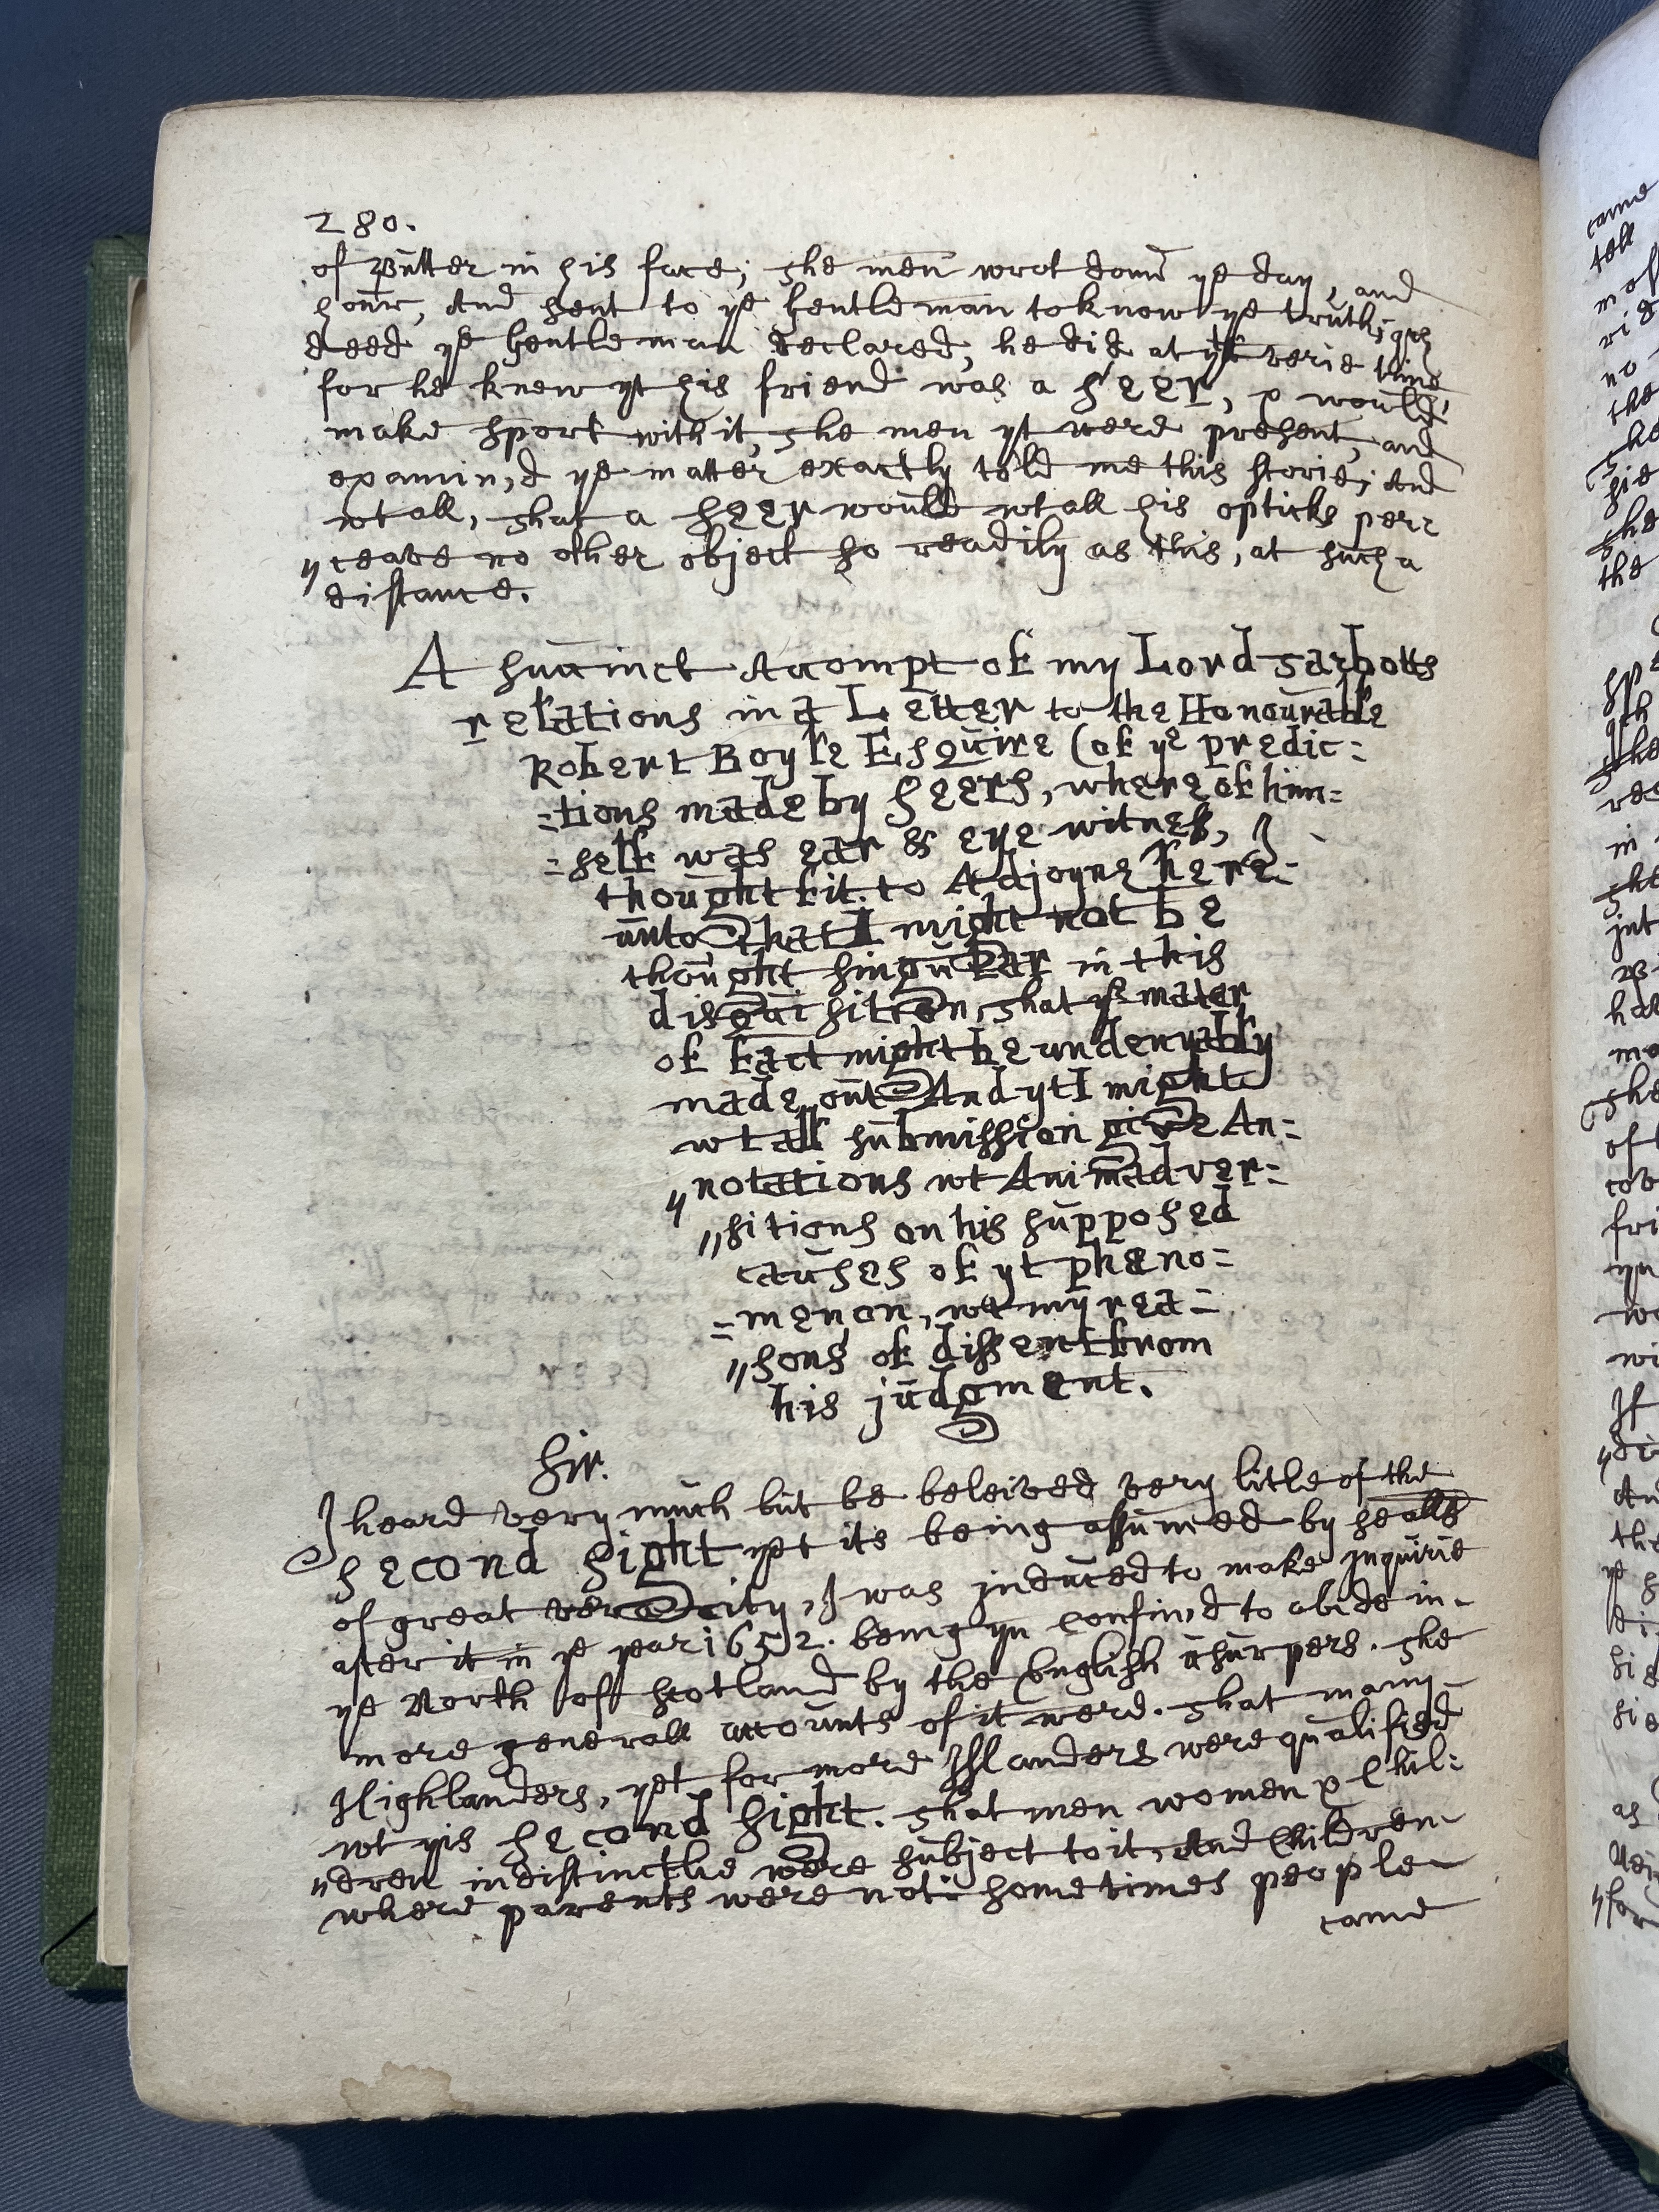 280.
of Butter in his face; The men wrot doun ye day, and
hour, And sent to ye gentleman to know ye truth; qch
deed ye gentleman declared, he did at yt verie time
for he knew yt his friend was a SEER, & would
make sport with it, The men yt were present, and
examin,d ye matter exactly told me this storie; And
wt all, That a SEER would wt all his opticks per:
„ceave no other object so readily as this, at such a
distance.
A succinct Accompt of my Lord Tarbotts
relations in a Letter to the Honourable
Robert Boyle Esquire (of ye predic:
=tions made by SEERS, whereof him=
=self was ear & eye witness, I
thought fit to Adjoyne here:
unto That I might not be
thought singular in this
disquisition, That ye mater
of fact might be undenyably
made out And yt I might
wt all submission give An:
„notations wt Animadver:
„sitions on his supposed
causes of yt phæno:
=menon, wt my rea:
„sons of dissent from
his judgment.
Sir.
I heard very much but be beleived very litle of the
second sight yet its being assumed by sealls
of great veracity, I was induced to make Inquirie
after it in ye year 1652. being yn confin,d to abide in
ye North of Scotland by the English usurpers. The
more generall accounts of it were. That many
Highlanders, yet far more Islanders were qualified
wt yis second sight. That men women & Chil:
„dren indistinctlie were subject to it, And Children
where parents were not: Sometimes people
came
came
tell
the
the